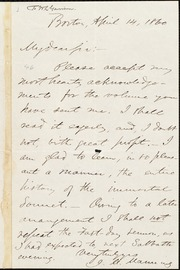 Boston, April 14, 1860
My dear sir:—
Please accept my
most hearty acknowledg-
ments for the volume you
have sent me. I shall
read it eagerly, and, I doubt
not, with great profit. I
am glad to learn, in so pleas-
ant a manner, the entire
history of the immortal
Sonnet. — Owing to a later
arrangement I shall not
repeat the Fast Day sermon, as
I had expected to next Sabbath
evening. Very truly yours
J. M. Manning